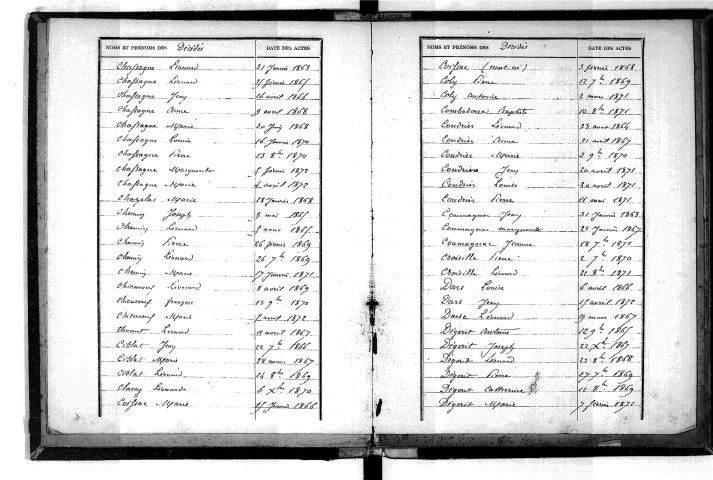 NOMS ET PRÉNOMS DES Décédés DATE DES ACTES
Chassagne Léonard 21 Janvier 1863
Chassagne Léonard 25 février 1865
Chassagne Jeny 26 avril 1866
Chassagne Anne 9 août 1868
Chassagne Marie 20 Juin 1868
Chassagne Louise 16 Janvier 1870
Chassagne Pierre 13 8bre 1870
Chassagne Marguerite 5 février 1872
Chassagne Marie 4 avril 1872
Chazelas Marie 28 Janvier 1868
Chemin Joseph 9 mai 1865
Chemin Léonard 5 août 1865
Chemin Pierre 26 février 1869
Chemin Léonard 26 7bre 1869
Chemin Marie 17 Janvier 1871
Léonard 8 avril 1869
françois 13 9bre 1870
Marie 5 avril 1872
Léonard 11 avril 1867
Ciblat Jeny 20 7bre 1866
Ciblat Marie 24 mars 1867
Ciblat Léonard 24 8bre 1869
Claray Léonarde 6 Xbre 1870
Coissac Marie 25 Janvier 1866
NOMS ET PRÉNOMS DES Décédés DATE DES ACTES
Coissac (mort-né) 3 février 1868
Coly Pierre 13 7bre 1869
Coly Antoine 2 mars 1871
Combadoux Baptiste 10 8bre 1871
Coudrier Léonard 23 août 1864
Coudrier Anne 21 avril 1867
Coudrier Marie 2 9bre 1870
Coudrière Jeny 20 avril 1871
Coudrier Louis 30 avril 1871
Coudrier Pierre 11 mai 1871
Coumagnac Jeny 31 Janvier 1863
Coumagnac marguerite 22 Janvier 1867
Coumagnac Jeanne 18 7bre 1872
Croisille Pierre 2 7bre 1870
Croisille Léonard 21 8bre 1871
Dars Louise 6 avril 1866
Dars Jeny 15 avril 1872
Darse Léonard 19 mars 1867
Dégorit Antoine 12 9bre 1865
Dégorit Joseph 22 Xbre 1865
Dégorit Léonard 22 8bre 1868
Dégorit Pierre 17 7bre 1869
Dégorit Catherine 12 8bre 1869
Dégorit Marie 7 février 1871